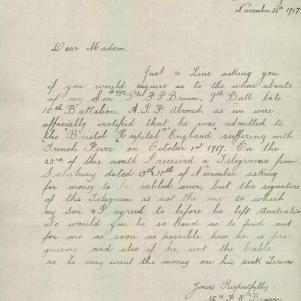 November 26th 1917
Dear Madam,
Just a Line asking you
if you would inquire as to the where abouts
of my Son Pte F P Brown. 9th Batt late
16th Battalion. A.I.F. Abroad, as we were
officially notified that he was admitted to
the "Bristol Hospital" "England" suffering with
"Trench Fever" on October 1st 1917. On the
23rd of this month I received a Telegram from
Salisbury dated 17th of November asking
for money to be cabled over, but the signature
of the Telegram is not the one to which
my Son & I agreed to before he left Australia
So would you be so kind as to find out
for me as soon as possible how he is pro-
gressing and also if he sent the cable
as he may want the money on his sick Leave
Yours Respectfully
Brown